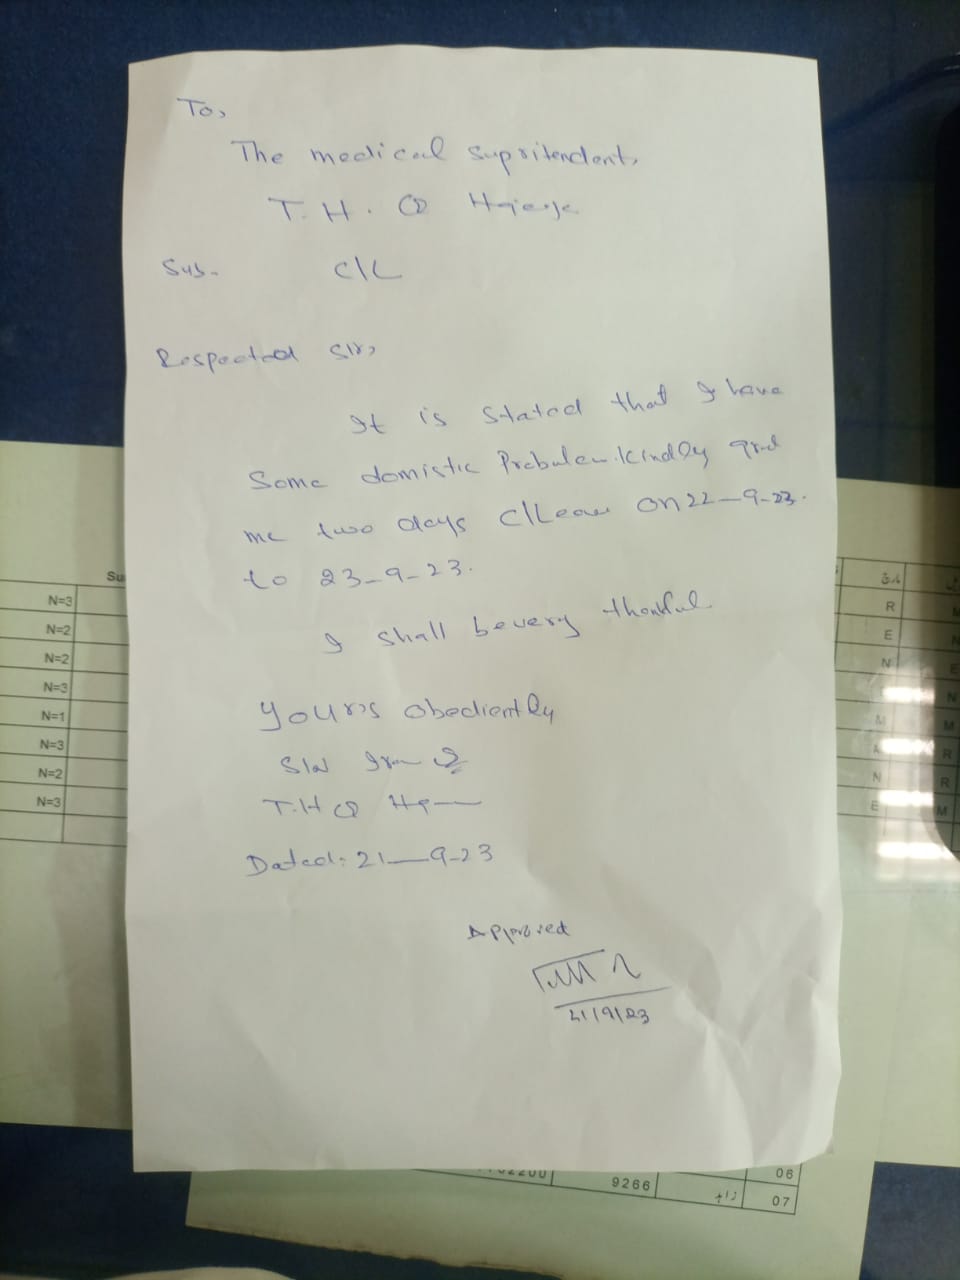 To,
The medical Supritendent,
T.H.Q
Sub- C/L
Respected Sir,
It is Stated that I have
Some domistic Probulem. Kindly
me two days C/Leave on 22-9-23.
to 23-9-23.
I shall be very thankful
yours obediently
S/N
T.H Q
Dated: 21-9-23
Approved
21/9/23
Su
N=3
N=2
N=2
N=3
N=1
N=3
N=2
N=3
R
E
N
M
N
E
N
M
R
R
M
9266
06
07